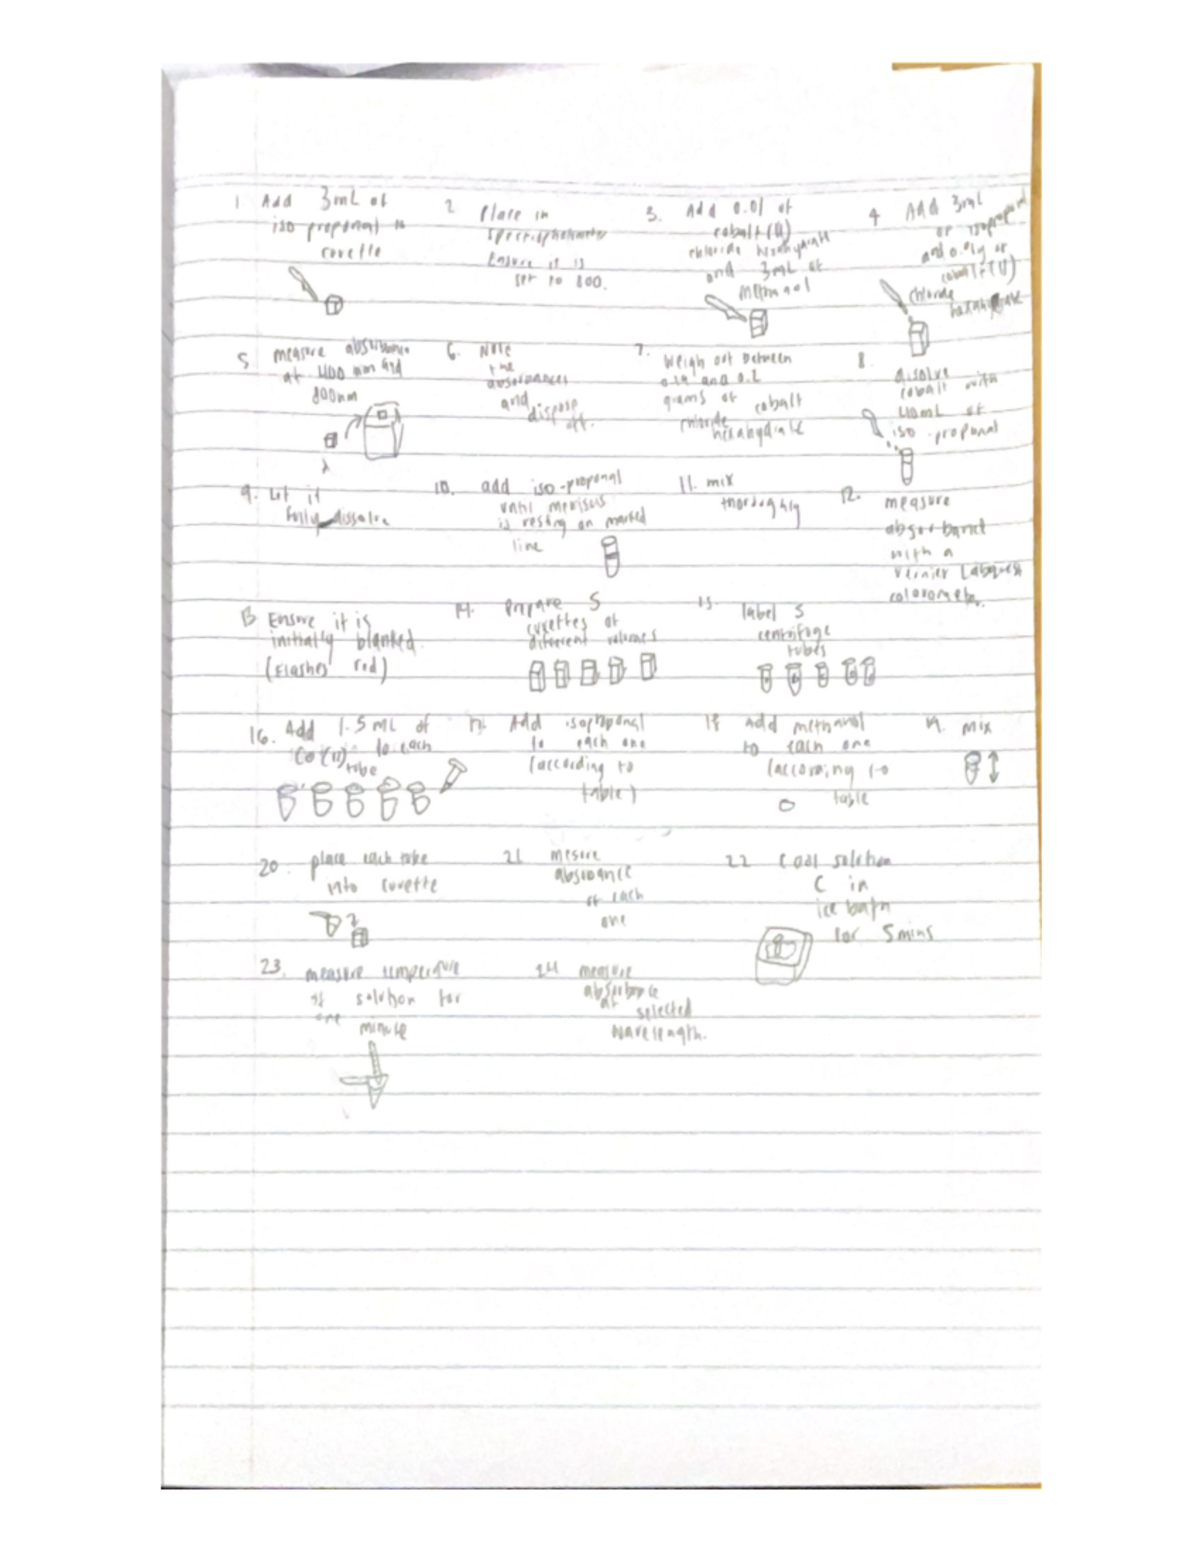 1 Add 3mL of
iso propanal to
cuvette
2 Place in
spectrophotometer
Ensure it is
set to 800.
3. Add 0.01 of
cobalt (II)
chloride hexahydrate
and 3mL of
methanol
4 Add 3mL
of isopropanol
and 0.01g of
cobalt (II)
chloride
hexahydrate
5 measure absorbance
at 400 nm and
800nm
6. Note
the
absorbances
and
dispose
off.
7. Weigh out between
0.19 and 0.2
grams of cobalt
chloride hexahydrate
8. disolve
cobalt with
40mL of
iso-propanal
9. Let it
fully dissolve
10. add iso-proponal
until meniscus
is resting on marked
line
11. mix
thoroughly
12. measure
absorbance
with a
Vernier Labquest
colorometer.
13 Ensure it is
initially blanked.
(flashes red)
14. prepare 5
cuvettes of
different volumes
15. label 5
centrifuge
tubes
16. Add 1.5mL of
Co(II) to each
tube
17. Add isopropanal
to each one
(according to
table)
18 add methanol
to each one
(according to
table
19. mix
20. place each tube
into cuvette
21 mesure
absorance
of each
one
22 cool solution
C in
ice bath
for 5mins
23. measure temperature
of solution for
one minute
24 measure
absorbance
at selected
wavelength.